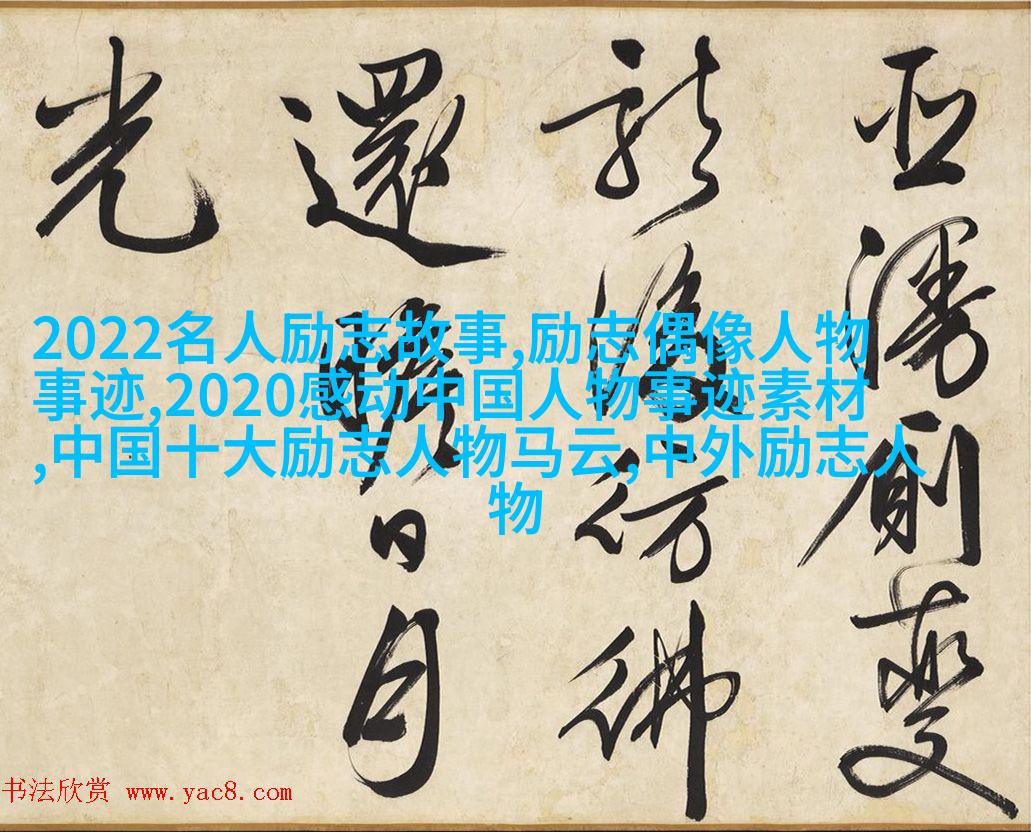 變
彷彿
還日月
光
2022名人励志故事,励志偶像人物
事迹,2020感动中国人物事迹素材
,中国十大励志人物马云,中外励志人
物
书法欣赏 www.yac8.com